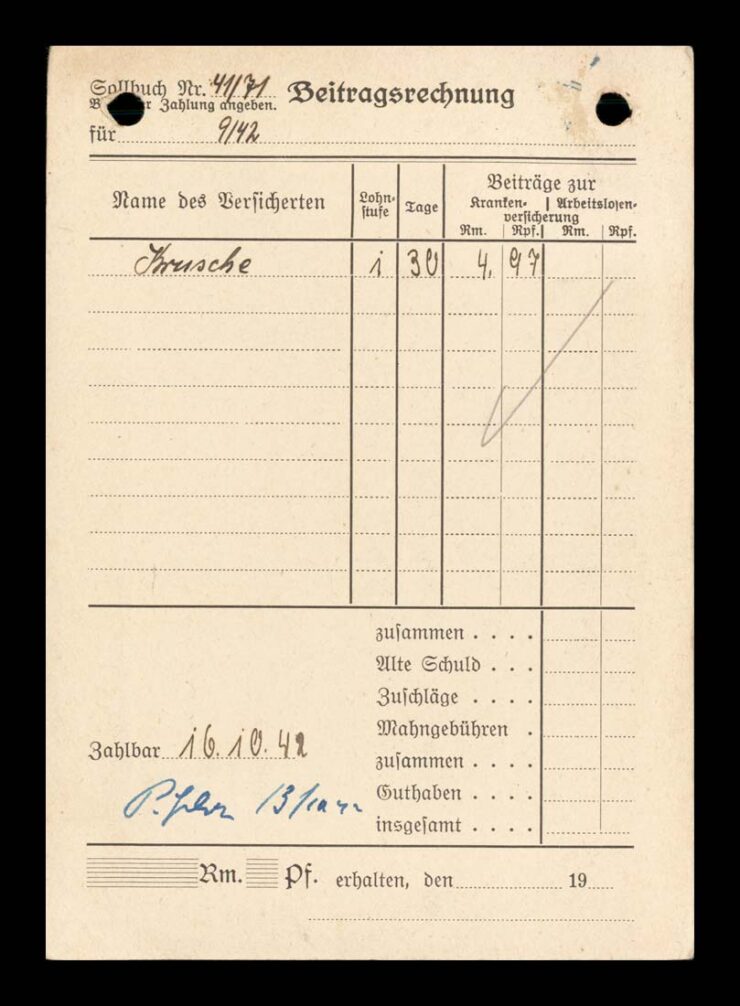 Sollbuch Nr. 41/71 Beitragsrechnung
Zahlung angeben.
für 9/42
Name des Versicherten
Lohn-
stufe
Tage
Beiträge zur
Kranken- | Arbeitslosen-
versicherung
Rm. Rpf. Rm. Rpf.
Krusche i 30 4. 97
zusammen . . . .
Alte Schuld . . .
Zuschläge . . . .
Mahngebühren .
Zahlbar 16.10.42
zusammen . . . .
Guthaben . . . .
insgesamt . . . .
Rm. Pf. erhalten, den 19